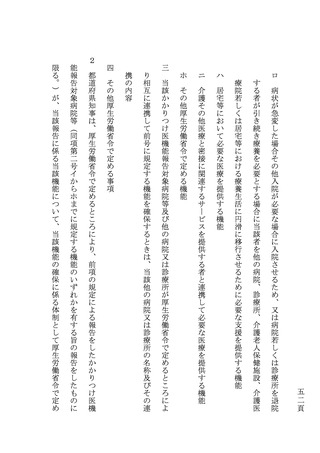 五二頁
ロ　病状が急変した場合その他入院が必要な場合に入院させるため、又は病院若しくは診療所を退院
する者が引き続き療養を必要とする場合に当該者を他の病院、診療所、介護老人保健施設、介護医
療院若しくは居宅等における療養生活に円滑に移行させるために必要な支援を提供する機能
ハ　居宅等において必要な医療を提供する機能
ニ　介護その他医療と密接に関連するサービスを提供する者と連携して必要な医療を提供する機能
ホ　その他厚生労働省令で定める機能
三　当該かかりつけ医機能報告対象病院等及び他の病院又は診療所が厚生労働省令で定めるところによ
り相互に連携して前号に規定する機能を確保するときは、当該他の病院又は診療所の名称及びその連
携の内容
四　その他厚生労働省令で定める事項
２　都道府県知事は、厚生労働省令で定めるところにより、前項の規定による報告をしたかかりつけ医機
能報告対象病院等（同項第二号イからホまでに規定する機能のいずれかを有する旨の報告をしたものに
限る。）が、当該報告に係る当該機能について、当該機能の確保に係る体制として厚生労働省令で定め